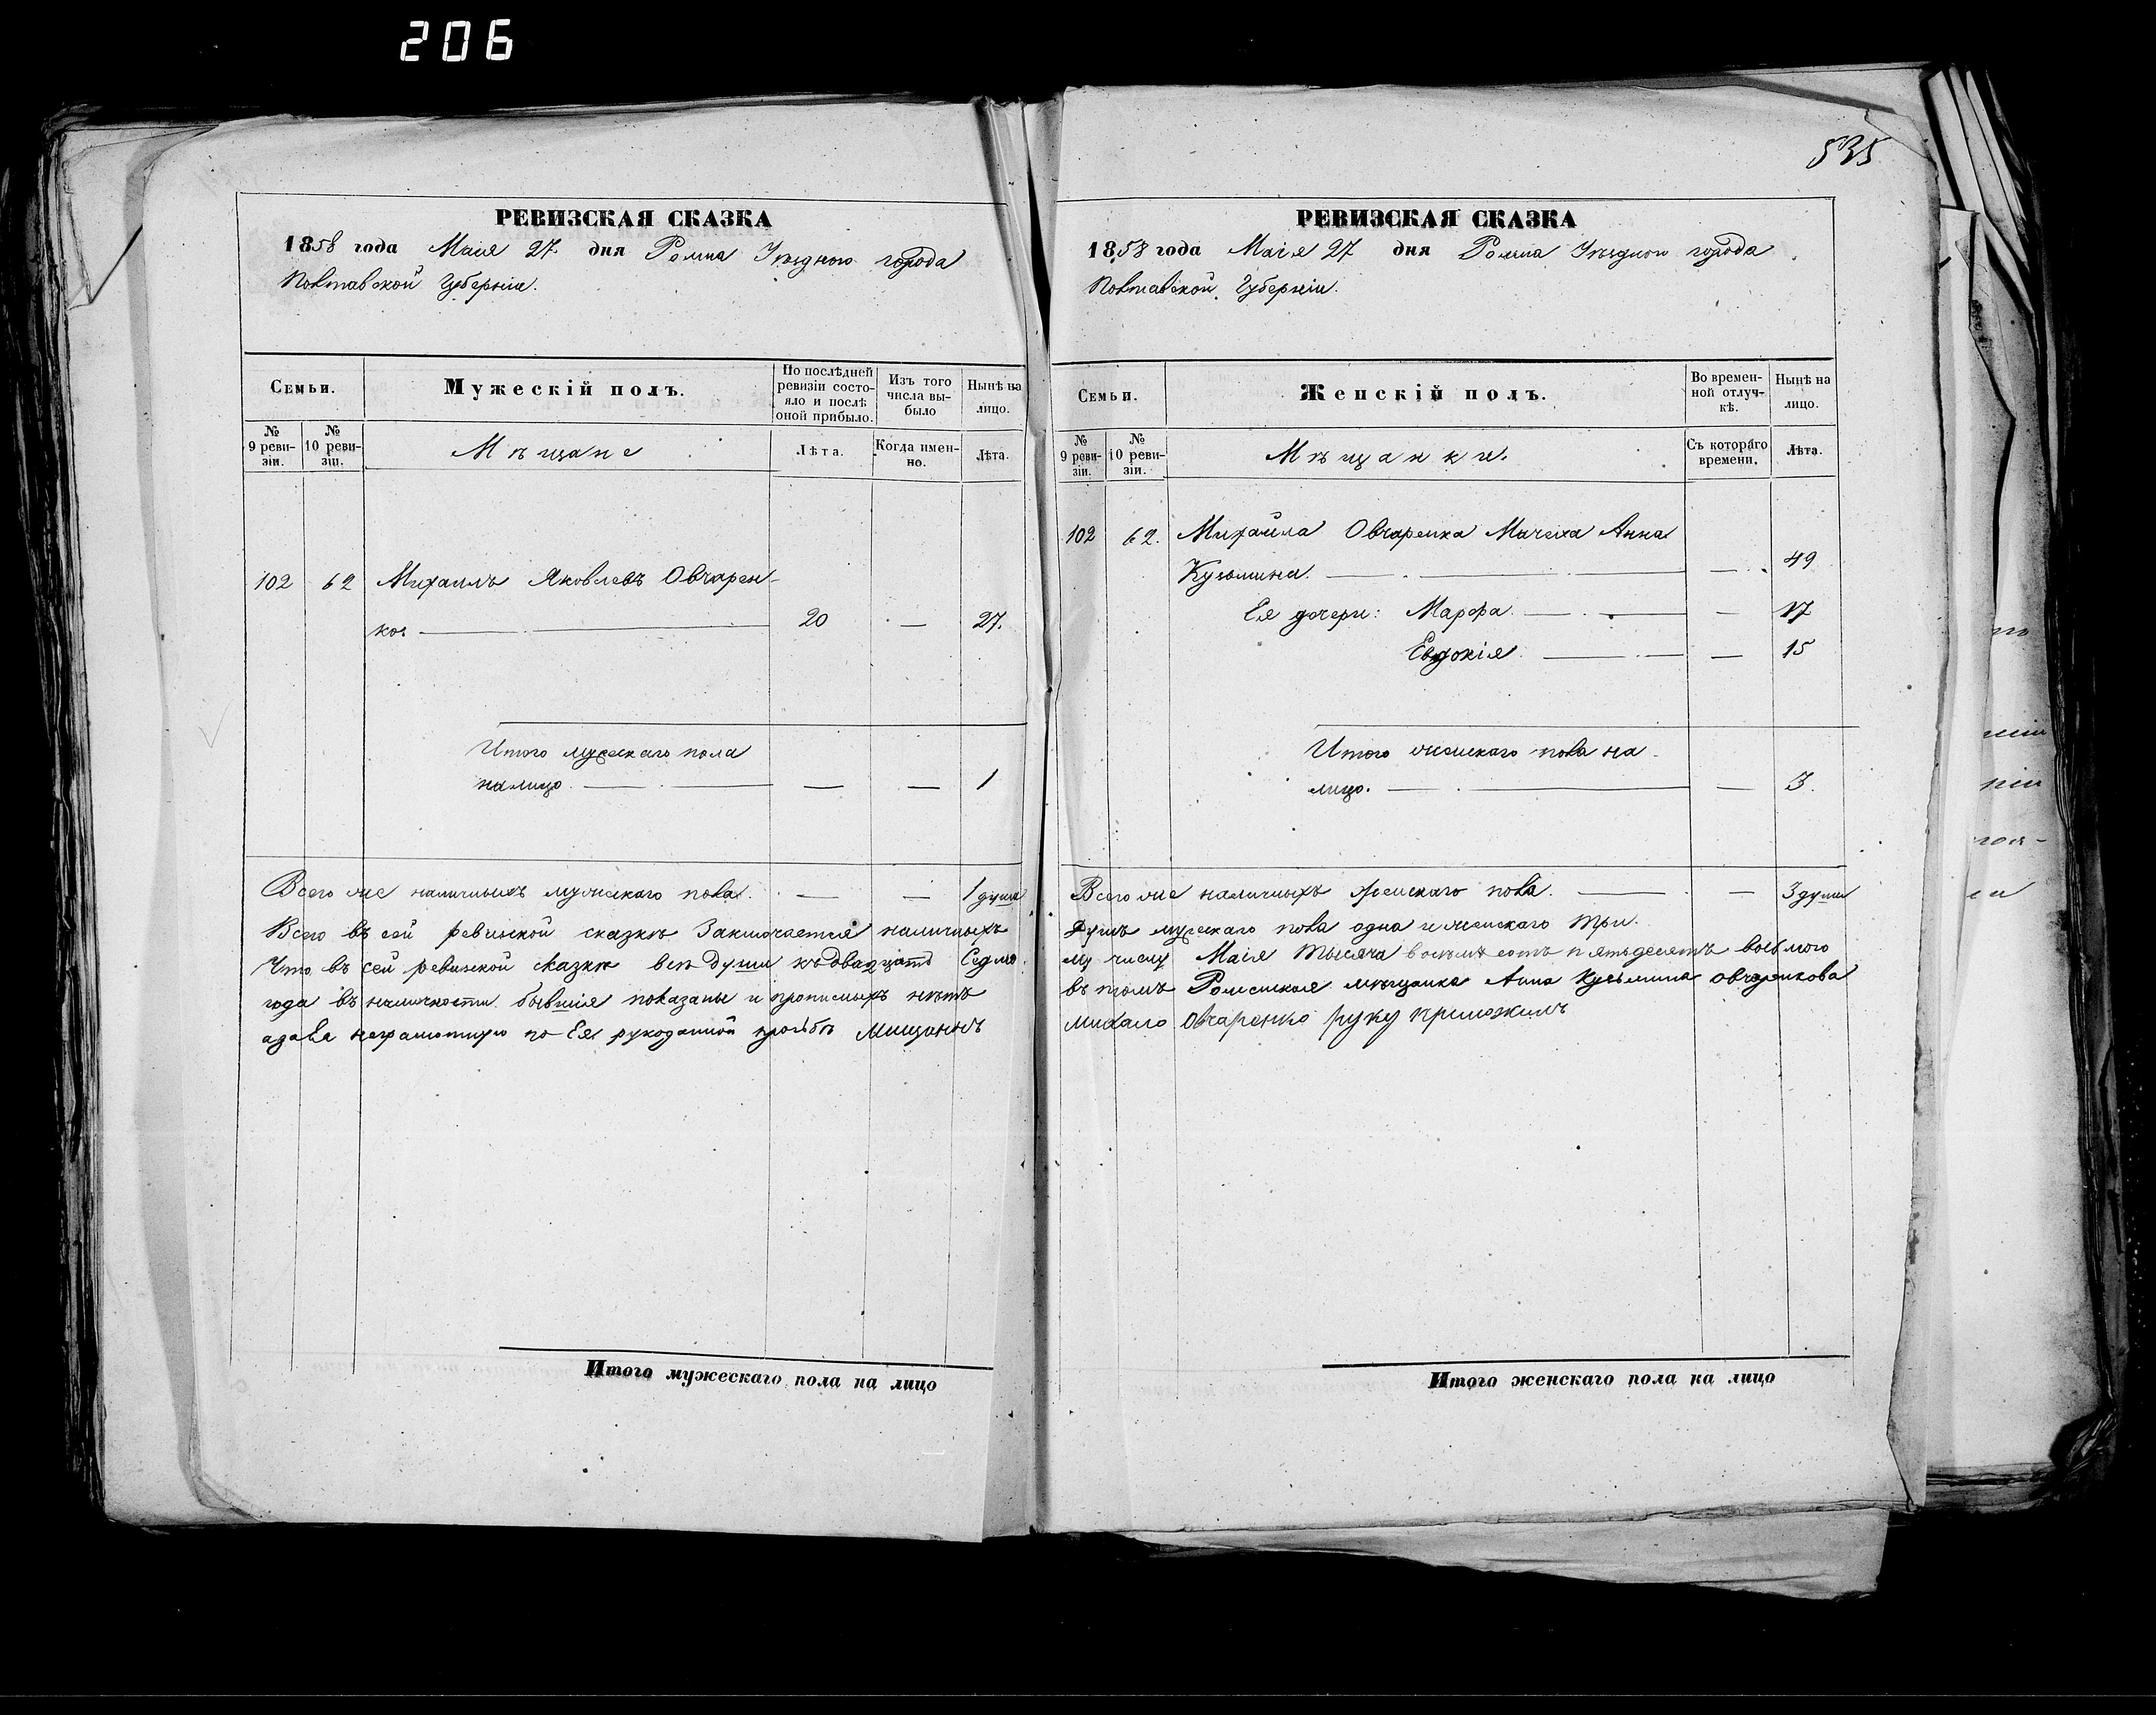 206
535
РЕВИЗСКАЯ СКАЗКА
1858 года Маія 27 дня Ромна Уѣзднаго города
Полтавской Губерніи.
Семьи.
Мужескій полъ.
По послѣдней ревизіи состояло и послѣ оной прибыло.
Изъ того числа выбыло
Нынѣ на лицо.
№ 9 ревизіи.
№ 10 ревизіи.
Мѣщане
Лѣта.
Когда именно.
Лѣта.
102 62 Михаилъ Яковлевъ Овчарен-
ко 20 — 27.
Итого мужескаго пола
налицо — — 1
Всего же наличныхъ мужескаго пола. — — 1 душа
Всего въ сей ревизской сказкѣ заключается наличныхъ
Что въ сей ревизской сказкѣ всѣ души къ двадцать седмо
года въ наличности бывшія показаны и прописныхъ нѣтъ
а за неграмотную по Ея рукоданной прозьбѣ Мищанинъ
Итого мужескаго пола на лицо
РЕВИЗСКАЯ СКАЗКА
1858 года Маія 27 дня Ромна Уѣзднаго города
Полтавской Губерніи.
Семьи.
Женскій полъ.
Во временной отлучкѣ.
Нынѣ на лицо.
№ 9 ревизіи.
№ 10 ревизіи.
Мѣщанки.
Съ котораго времени.
Лѣта.
102 62. Михайла Овчаренка Мачеха Анна
Кузьмина. — 49
Ея дочери: Марфа. — 17
Евдокія — 15
Итого женскаго пола на-
лицо. — 3.
Всего же наличныхъ женскаго пола. — 3 души
Душъ мужескаго пола одна и женскаго три.
му числу Маія тысяча восемъсотъ пятьдесятъ восьмого
въ томъ Роменская мѣщанка Анна Кузьмина Овчаренкова
Михайло Овчаренко руку приложилъ
Итого женскаго пола на лицо